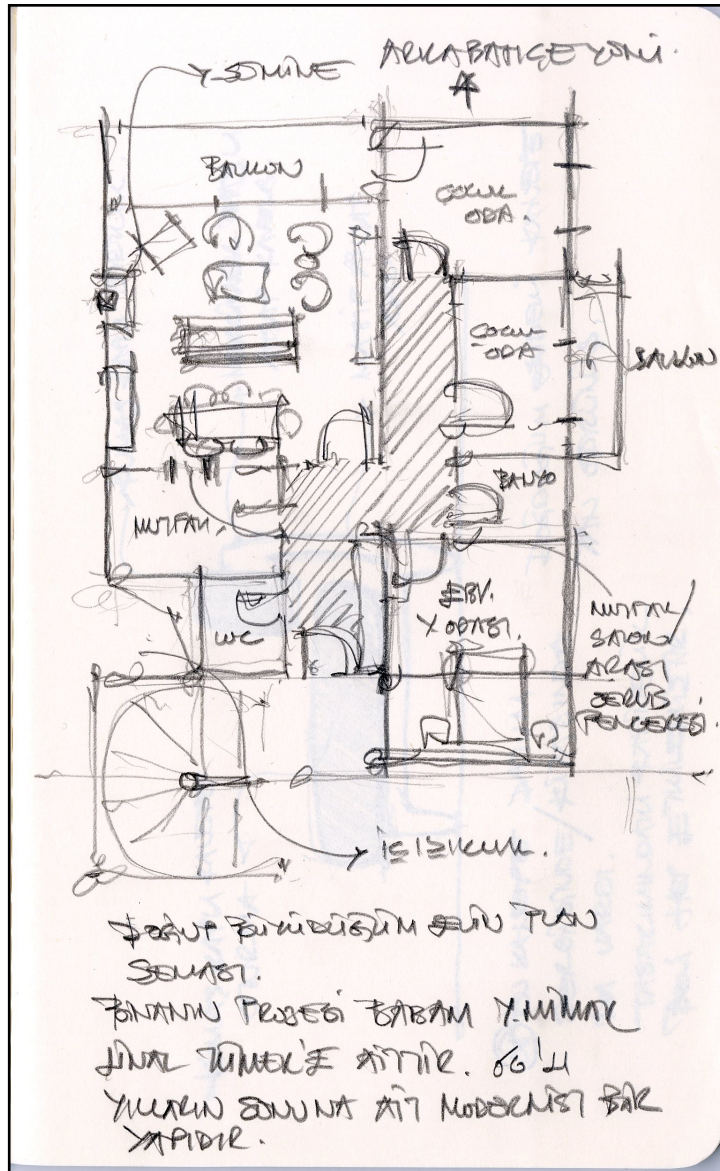 ŞÖMİNE
ARKA BAHÇE YÖNÜ.
BALKON
ÇOCUK
ODA.
ÇOCUK
ODA
BALKON
BANYO
MUTFAK.
WC
EBV.
Y.ODASI.
MUTFAK/
SALON
ARASI
SERVİS
PENCERESİ.
IŞIKLIK.
DOĞUP BÜYÜDÜĞÜM EVİN PLAN
ŞEMASI.
BİNANIN PROJESİ BABAM Y.MİMAR
ÜNAL TÜMER'E AİTTİR. 60'LI
YILLARIN SONUNA AİT MODERNİST BİR
YAPIDIR.